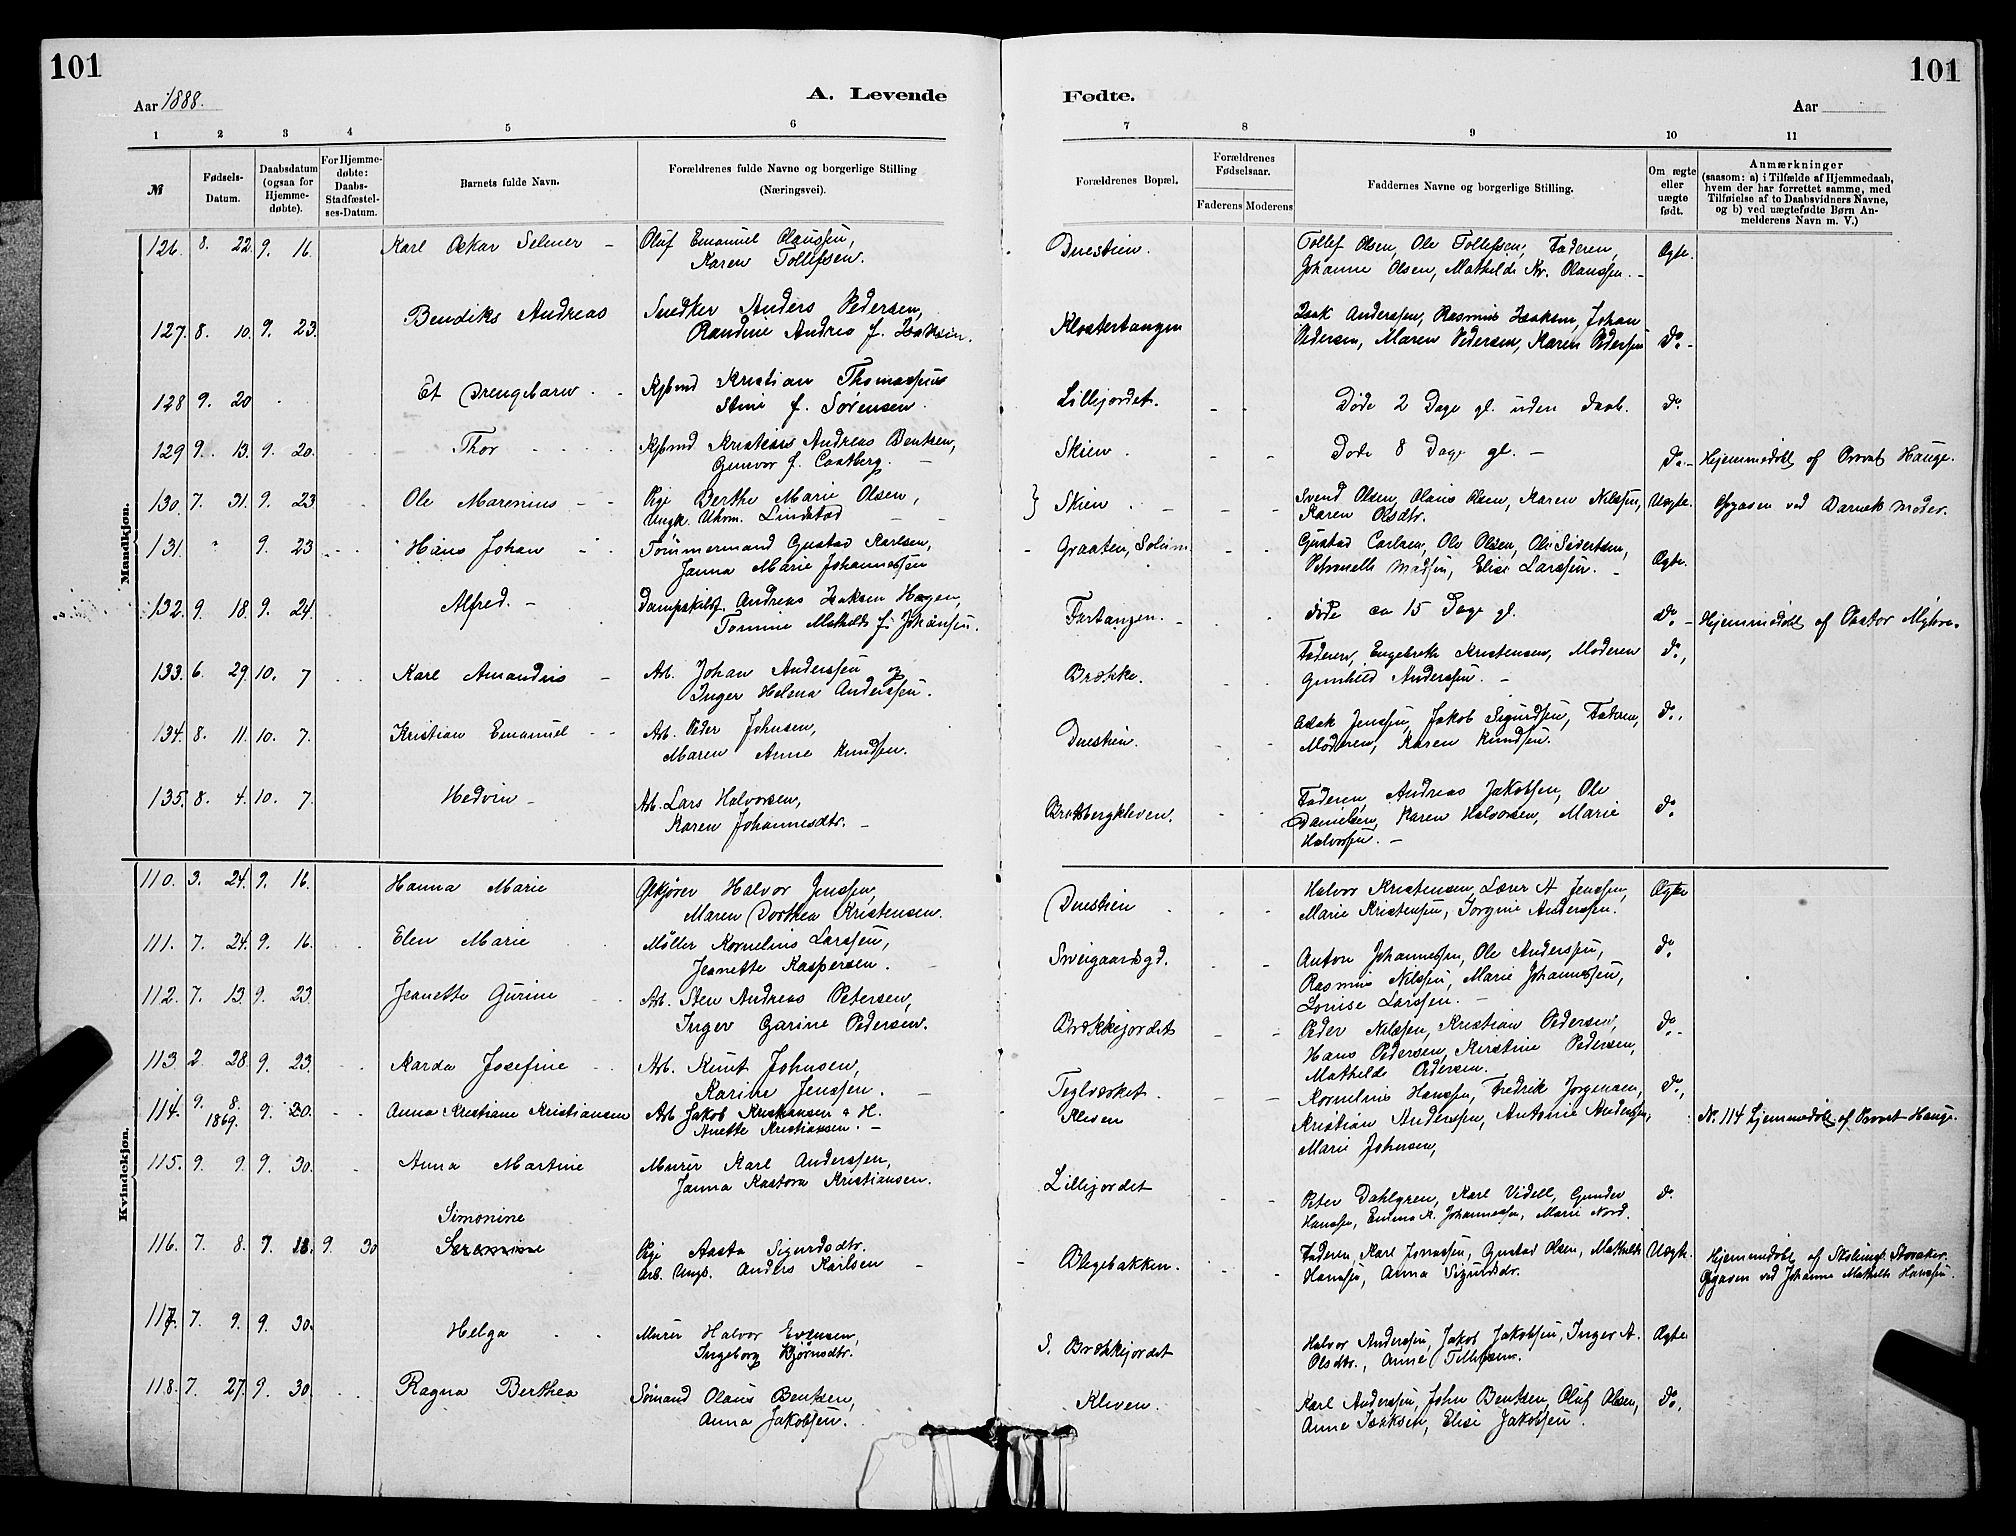 101
101
Aar 1888.
A. Levende
Fødte.
Aar
1 2 3 4 5 6 7 8 9 10 11
№
Fødsels-Datum.
Daabsdatum (ogsaa for Hjemme-døbte).
For Hjemme-døbte: Daabs-Stadfæstel-ses-Datum.
Barnets fulde Navn.
Forældrenes fulde Navne og borgerlige Stilling (Næringsvei).
Forældrenes Bopæl.
Forældrenes Fødselsaar.
Faderens Moderens
Faddernes Navne og borgerlige Stilling.
Om ægte eller uægte født.
Anmærkninger (saasom: a) i Tilfælde af Hjemmedaab, hvem der har forrettet samme, med Tilføielse af to Daabsvidners Navne, og b) ved uægtefødte Børn Anmelderens Navn m. V.)
Mandkjøn.
126. 8. 22. 9. 16. Karl Oskar Selmer – Oluf Emanuel Olaussen, Duestien. Tollef Olsen, Ole Tollefsen, Faderen, Ægte.
Karen Tollefsen. Johanne Olsen, Mathilde Kr. Olaussen. –
127. 8. 10. 9. 23. Bendiks Andreas Snedker Anders Pedersen, Klostertangen Isak Anderssen, Rasmus Isaksen, Johan
Randine Andrea f. Isaksen. Pedersen, Maren Pedersen, Karen Pederssen do. –
128 9. 20 Et Drengebarn Kjbmd Kristian Thomassen Lillejordet. Døde 2 Dage gl. uden Daab. do
Stine f. Sørensen.
129 9. 13. 9. 20. Thor Kjbmd Andreas Bentsen, Skien. Døde 8 Dage gl. – do. – Hjemmedøbt af Provst Hauge.
Gunvor f. Castberg. –
130. 7. 31. 9. 23 Ole Marenius – Pige Berthe Marie Olsen, Skien. Svend Olsen, Olaus Olsen, Karen Nilssen, Uægte. Opgaven ved Barnets Moder.
Ungk. Lindstad Karen Olsdtr.
131. " 9. 23 Hans Johan Tømmermand Gustav Karlsen, Graaten, Solum Gustav Carlsen, Ole Olsen, Ole Sivertsen, Ægte.
Janna Marie Johannessen Petronelle Madsen, Elise Larssen. –
132. 9. 18. 9. 24. Alfred. – Dampskibsf. Andreas Isaksen Hagen, Fartangen. døde ca 15 Dage gl. do. – Hjemmedøbt af Pastor Myhre.
Tomine Mathilde f. Johansen.
133. 6. 29. 10. 7 Karl Amandus – Arb. Johan Anderssen og Brække. Faderen, Engebreth Kristensen, Moderen do.,
Inger Helena Anderssen. Gunhild Anderssen. –
134. 8. 11. 10. 7. Kristian Emanuel Arb. Peder Johnsen, Duestien. Aslak Jenssen, Jakob Sigurdsen, Faderen, do.,
Maren Anne Knudssen. Moderen, Karen Knudssen.
135. 8. 4. 10. 7. Hedvin – Arb. Lars Halvorsen, Bratsbergkleven. Faderen, Andreas Jakobsen, Ole do.
Karen Johannesdtr. – Danielsen, Karen Halvorsen, Marie
Halvorsen. –
Kvindekjøn.
110. 3. 24. 9. 16. Hanna Marie Halvor Jenssen, Duestien Halvor Kristensen, Lærer A Jenssen, Ægte
Maren Dorthea Kristensen. Marie Kristenssen, Jorgine Anderssen.
111. 7. 24. 9. 16. Elen Marie Møller Kornelius Larssen, Sneigaardsgd. Anton Johannessen, Ole Anderssen, do
Jeanette Kaspersen. Rasmus Nilssen, Marie Johannessen,
Lovise Larssen. –
112. 7. 13. 9. 23. Jeanette Gurine Arb. Sten Andreas Petersen, Brækkejordet Peder Nilssen, Kristian Pedersen, do. –
Inger Gurine Pedersen. Hans Pedersen, Kirstine Pedersen,
Mathilde Pedersen.
113. 2. 28. 9. 23. Karda Josefine Arb. Knut Johnsen, Teglværket. Kornelius Hanssen, Fredrik Jorgensen, do.,
Karine Jenssen. Kristian Anderssen, Antonie Anderssen,
114. 9. 8. 1869. 9. 30. Anna Kristiane Kristiansen Arb. Jakob Kristiansen & H. Kleven Marie Johnsen, N. 114 hjemmedøbt af Provst Hauge.
Anette Kristiansen. –
115. 9. 9. 9. 30. Anna Martine Murer Karl Anderssen, Lillejordet Peter Dahlgren, Karl Videll, Gunder do
Janna Kastora Kristiansen. Hanssen, Emma K. Johannessen, Marie Nord.
Simonine
116. 7. 8. 7. 18. 9. 30 Pige Aasta Sigurdsdtr. Blegebakken. Faderen, Karl Jonassen, Gustav Olsen, Mathilde Uægte. Hjemmedøbt af
Arb. Ungk. Anders Karlsen Hanssen, Anna Sigurdsdr. Opgaven ved Johanne Mathilde Hanssen.
117. 7. 9. 9. 30. Helga Murer Halvor Evensen, S. Brækkejordet Halvor Anderssen, Jakob Jakobsen, Inger A. Ægte.
Ingeborg Bjørnsdtr. Olsdtr., Anne Tollefsen.
118. 7. 27. 9. 30. Ragna Berthea Sømand Olaus Bentsen, Kleven. Karl Anderssen, John Bentsen, Oluf Olsen, do.,
Anna Jakobsen. Anne Isaksen, Elise Jakobsen.